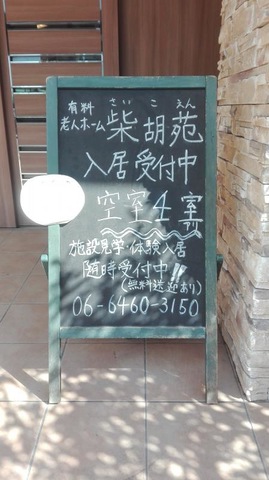 有料
老人ホーム
さいこえん
柴胡苑
入居受付中
空室4室
あり
施設見学・体験入居
随時受付中!!
(無料送迎あり)
06-6460-3150